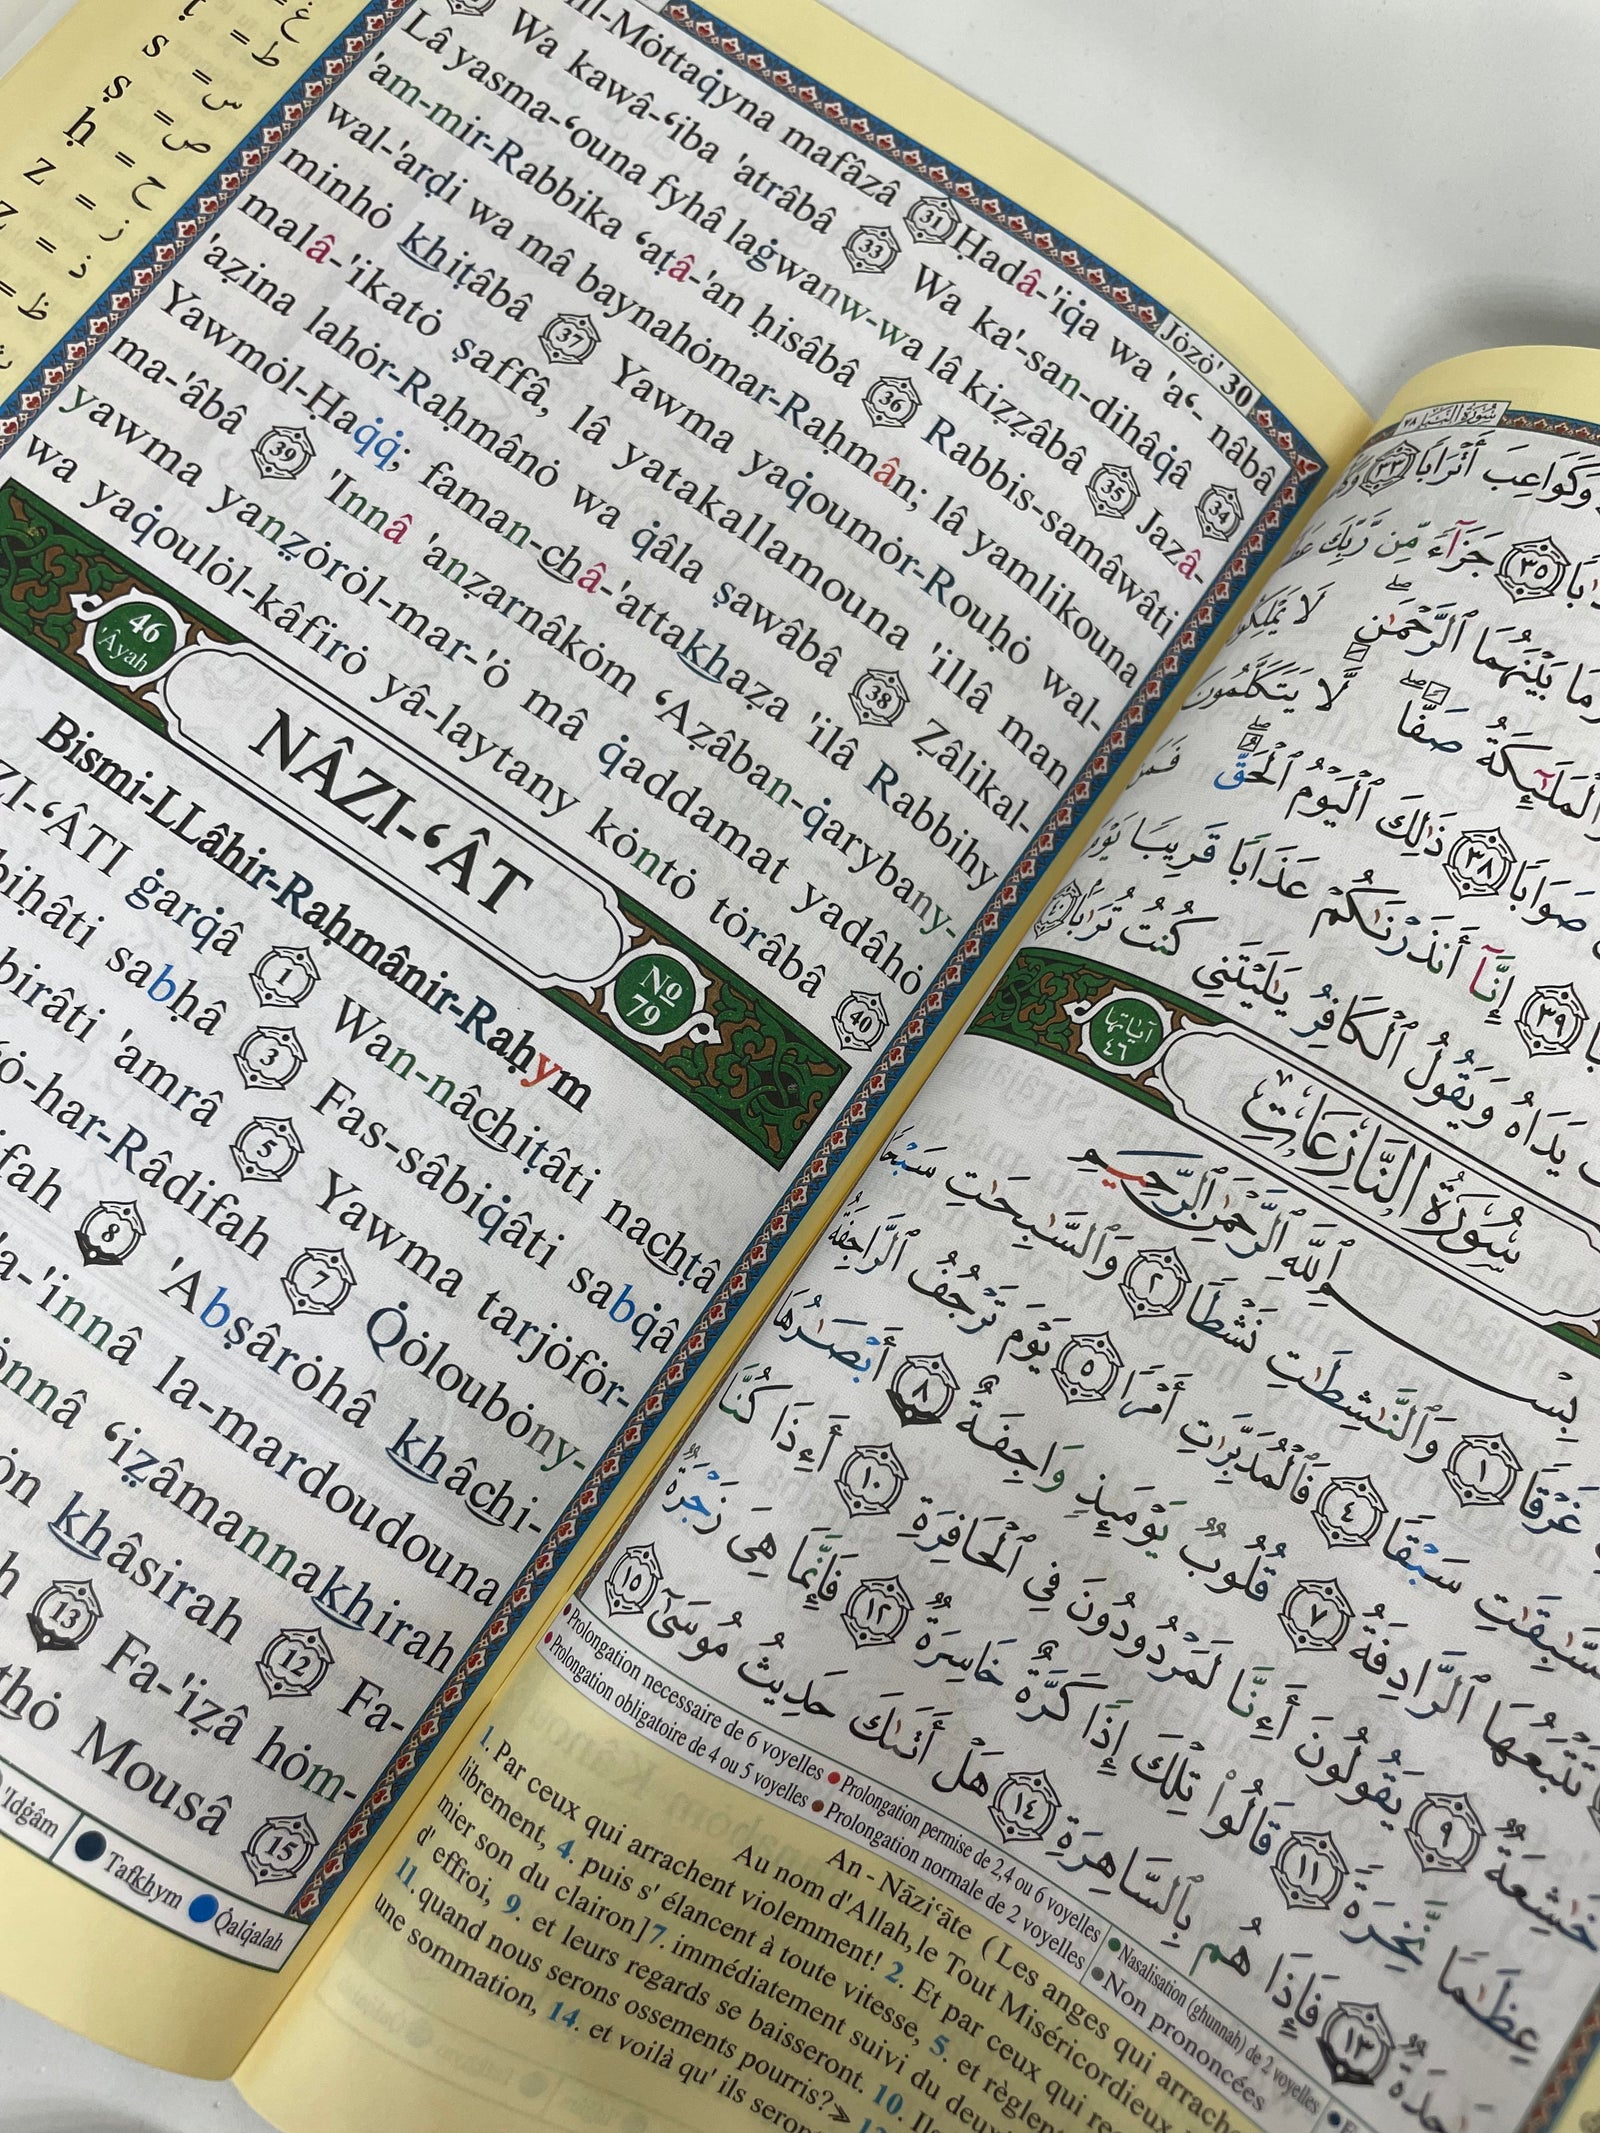 غ =
ط =
s = س
ṣ = ص
ḥ = ح
z = ز
= ذ
= ظ
Jȯzȯ' 30
lil-Mȯttaq̇yna mafâzâ 31 Ḥadâ-'iq̇a wa 'a‘- nâbâ
Wa kawâ-‘iba 'atrâbâ 33 Wa ka'-san-dihâq̇â 34
Lâ yasma-‘ouna fyhâ laġwanw-wa lâ kiẓẓâbâ 35 Jazâ-
'am-mir-Rabbika ‘aṭâ-'an ḥisâbâ 36 Rabbis-samâwâti
wal-'arḍi wa mâ baynahȯmar-Raḥmân; lâ yamlikouna
minhȯ khiṭâbâ 37 Yawma yaq̇oumȯr-Rouḥȯ wal-
malâ-'ikatȯ ṣaffâ, lâ yatakallamouna 'illâ man
'aẓina lahȯr-Raḥmânȯ wa q̇âla ṣawâbâ 38 Ẓâlikal-
Yawmȯl-Ḥaq̇q̇; faman-châ-'attakhaẓa 'ilâ Rabbihy
ma-'âbâ 39 'Innâ 'anẓarnâkȯm ‘Aẓâban-q̇arybany-
yawma yanẓȯrȯl-mar-'ȯ mâ q̇addamat yadâhȯ
wa yaq̇oulȯl-kâfirȯ yâ-laytany kȯntȯ tȯrâbâ 40
46 'Âyah
NÂZI-‘ÂT
Nº 79
Bismi-LLâhir-Raḥmânir-Raḥym
ZI-‘ÂTI ġarq̇â 1 Wan-nâchiṭâti nachṭâ
biḥâti sabḥâ 3 Fas-sâbiq̇âti sabq̇â
birâti 'amrâ 5 Yawma tarjȯfȯr-
ȯ-har-Râdifah 7 Q̇ȯloubȯny-
ifah 8 'Abṣârȯhâ khâchi-
'a-'innâ la-mardoudouna
ȯnnâ ‘iẓâmannakhirah
ȯn khâsirah 12 Fa-
h 13 Fa-'iẓâ hȯm-
thȯ Mousâ 15
'Idġâm Tafkhym Q̇alq̇alah
سُورَةُ النَّبَإِ ٧٨
وَكَوَاعِبَ أَتْرَابًا ٣٣
٣٥ جَزَآءً مِّن رَّبِّكَ
وَمَا بَيْنَهُمَا ٱلرَّحْمَٰنِ لَا يَمْلِكُونَ
وَٱلْمَلَٰٓئِكَةُ صَفًّا لَّا يَتَكَلَّمُونَ
صَوَابًا ٣٨ ذَٰلِكَ ٱلْيَوْمُ ٱلْحَقُّ
٣٩ إِنَّآ أَنذَرْنَٰكُمْ عَذَابًا قَرِيبًا
يَدَاهُ وَيَقُولُ ٱلْكَافِرُ يَٰلَيْتَنِى كُنتُ تُرَٰبًا ٤٠
آياتها ٤٦
سُورَةُ النَّازِعَاتِ
بِسْمِ ٱللَّهِ ٱلرَّحْمَٰنِ ٱلرَّحِيمِ
غَرْقًا ١ وَٱلنَّٰشِطَٰتِ نَشْطًا ٢ وَٱلسَّٰبِحَٰتِ سَبْحًا
سَبْقًا ٤ فَٱلْمُدَبِّرَٰتِ أَمْرًا ٥ يَوْمَ تَرْجُفُ ٱلرَّاجِفَةُ
تَتْبَعُهَا ٱلرَّادِفَةُ ٧ قُلُوبٌ يَوْمَئِذٍ وَاجِفَةٌ ٨ أَبْصَٰرُهَا
خَٰشِعَةٌ ٩ يَقُولُونَ أَءِنَّا لَمَرْدُودُونَ فِى ٱلْحَافِرَةِ ١٠ أَءِذَا كُنَّا
عِظَٰمًا نَّخِرَةً ١١ قَالُوا۟ تِلْكَ إِذًا كَرَّةٌ خَاسِرَةٌ ١٢ فَإِنَّمَا هِىَ زَجْرَةٌ
١٣ فَإِذَا هُم بِٱلسَّاهِرَةِ ١٤ هَلْ أَتَىٰكَ حَدِيثُ مُوسَىٰٓ ١٥
Prolongation necessaire de 6 voyelles Prolongation permise de 2,4 ou 6 voyelles Nasalisation (ghunnah) de 2 voyelles
Prolongation obligatoire de 4 ou 5 voyelles Prolongation normale de 2 voyelles Non prononcées
An - Nāzi‘āte ( Les anges qui arrach
Au nom d'Allah, le Tout Miséricordieux
1. Par ceux qui arrachent violemment! 2. Et par ceux qui
librement, 4. puis s' élancent à toute vitesse, 5. et règlent
mier son du clairon] 7. immédiatement suivi du deux
d' effroi, 9. et leurs regards se baisseront. 10. Ils
11. quand nous serons ossements pourris?»
une sommation, 14. et voilà qu' ils seron